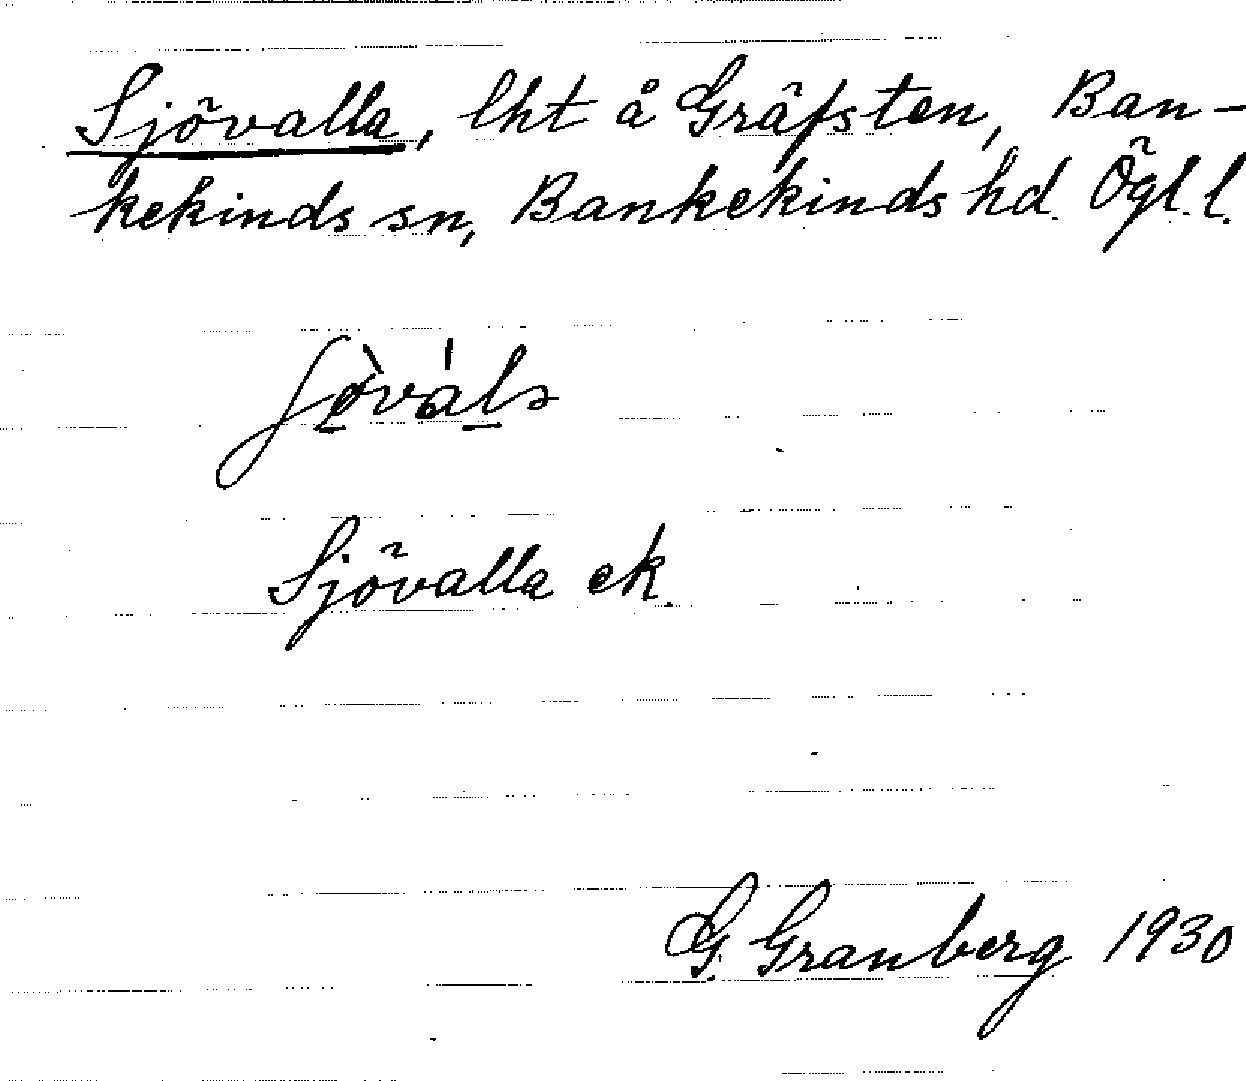 Sjövalla, lht å Gräfsten, Ban-
kekinds sn, Bankekinds hd. Ögl. l.
Sjövalla ek.
G. Granberg 1930